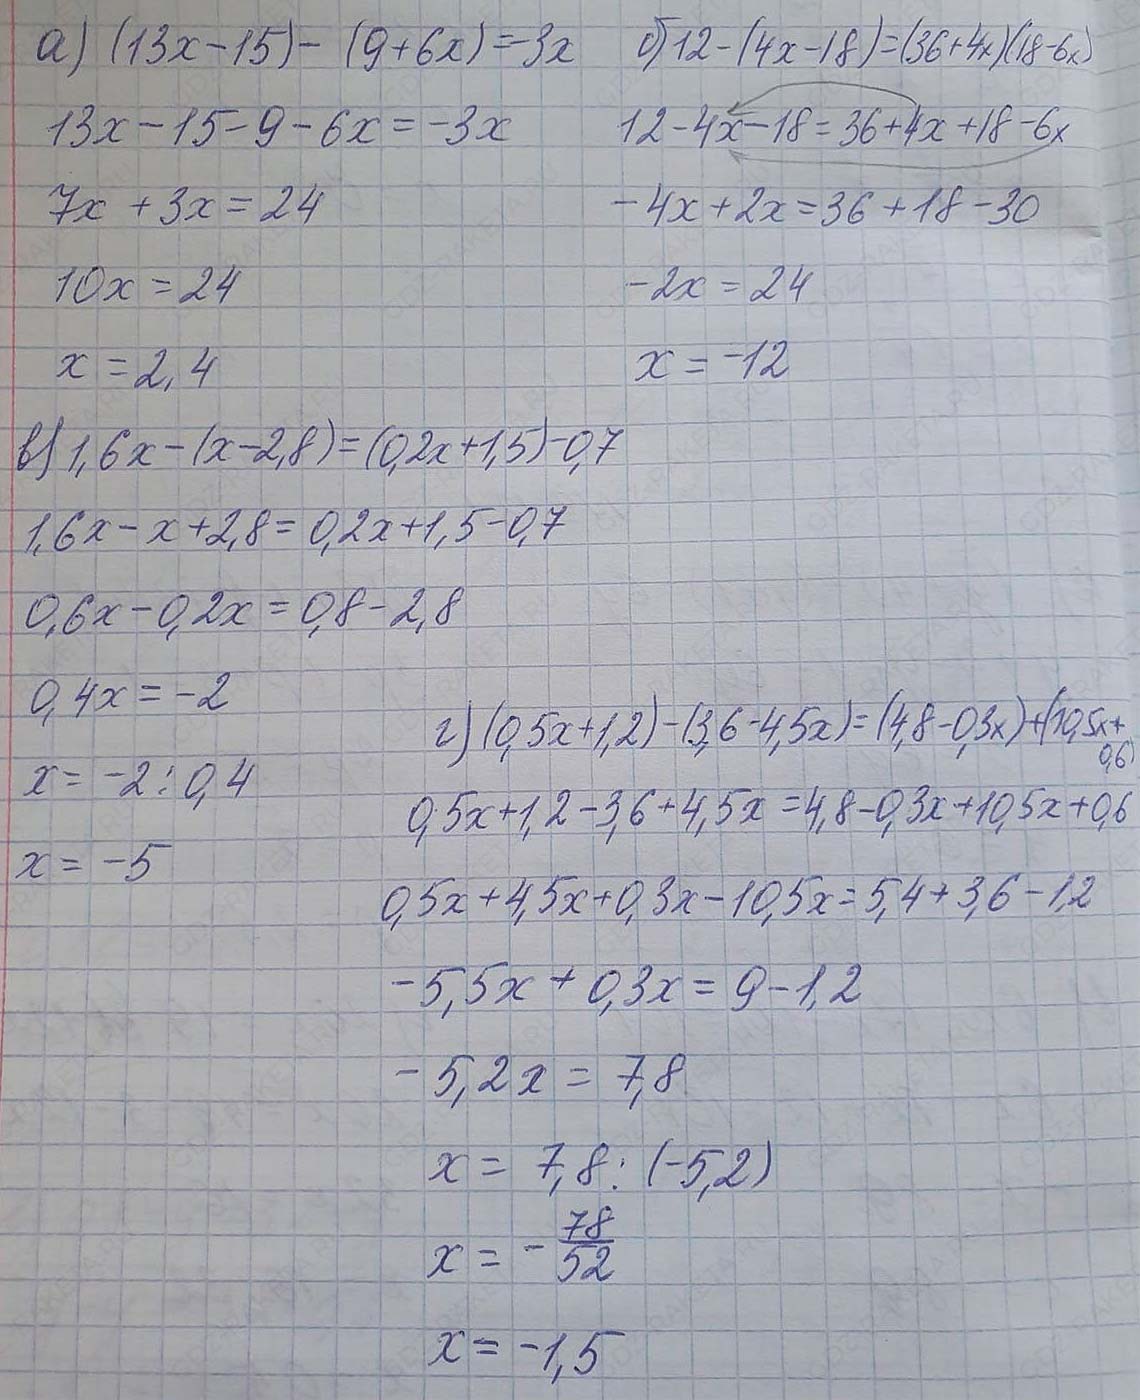 а) (13x-15)-(9+6x)=-3x
13x-15-9-6x=-3x
7x+3x=24
10x=24
x=2,4
б) 12-(4x-18)=(36+4x)(18-6x)
12-4x-18=36+4x+18-6x
-4x+2x=36+18-30
-2x=24
x=-12
в) 1,6x-(x-2,8)=(0,2x+1,5)-0,7
1,6x-x+2,8=0,2x+1,5-0,7
0,6x-0,2x=0,8-2,8
0,4x=-2
x=-2:0,4
x=-5
г) (0,5x+1,2)-(3,6-4,5x)=(4,8-0,3x)+(10,5x+
0,6)
0,5x+1,2-3,6+4,5x=4,8-0,3x+10,5x+0,6
0,5x+4,5x+0,3x-10,5x=5,4+3,6-1,2
-5,5x+0,3x=9-1,2
-5,2x=7,8
x=7,8:(-5,2)
x=-78/52
x=-1,5